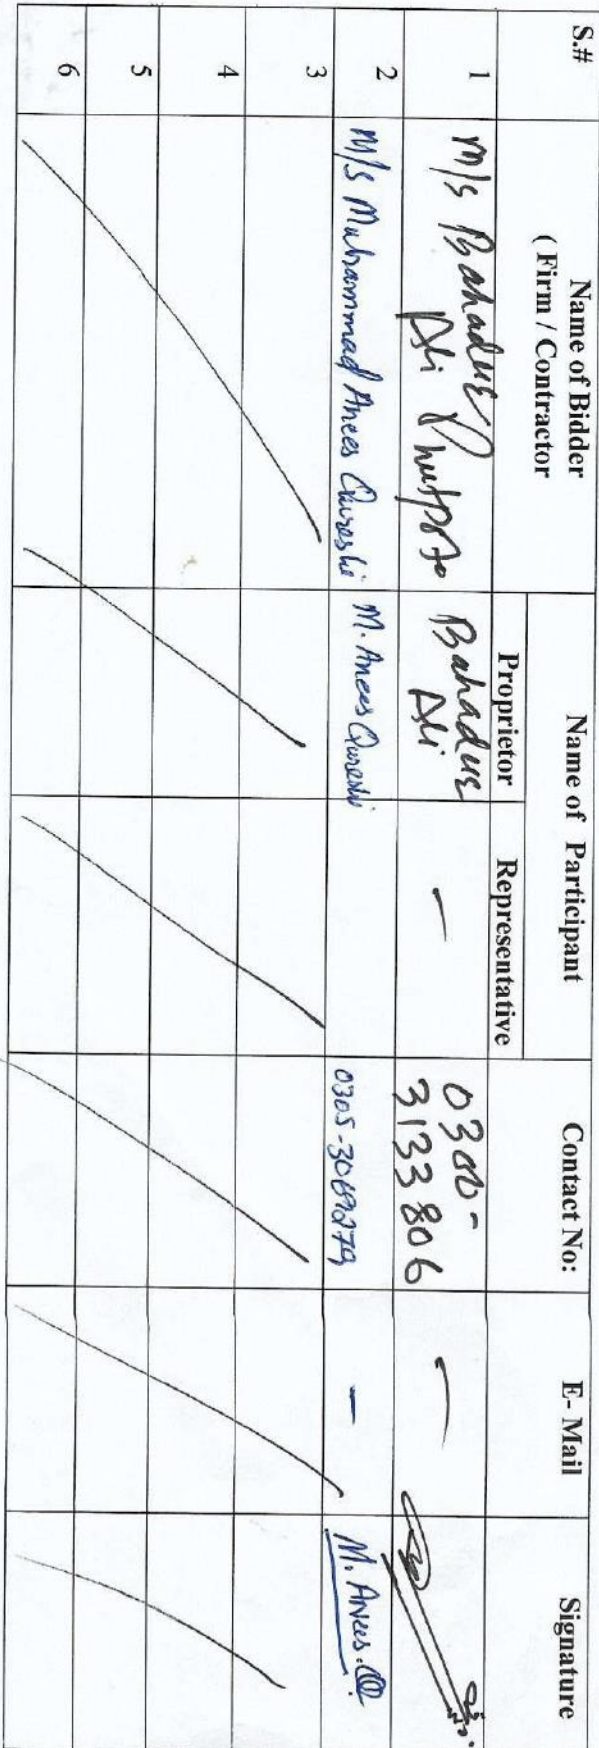 S.#
Name of Bidder
( Firm / Contractor
Name of Participant
Proprietor
Representative
Contact No:
E- Mail
Signature
1
M/s Bahadur
Ali
Bahadur
Ali
—
0300-
3133806
—
2
M/s Muhammad Anees Qureshi
M. Anees Qureshi
—
M. Anees.Q.
3
4
5
6